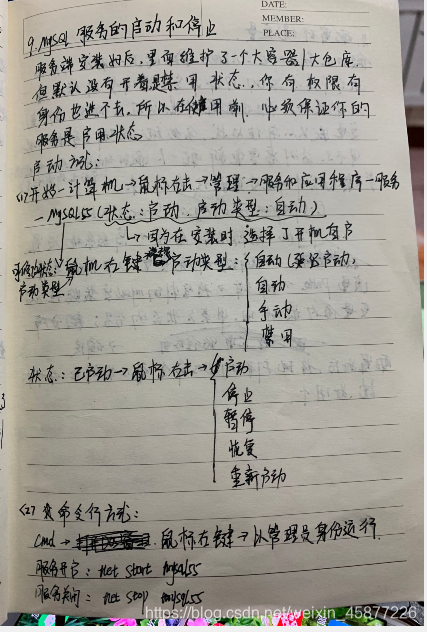 DATE:
MEMBER:
PLACE:
9. MySQL 服务的启动和停止
服务端安装好后，里面维护了一个大容器/大仓库，
但默认没有开着是禁用状态，你有权限有
身份也进不去，所以在使用前，必须保证你的
服务是启用状态
启动方式：
<1>开始-计算机→鼠标右击→管理→服务和应用程序-服务
-MySQL55(状态：启动，启动类型：自动)
→因为在安装时选择了开机自启
启动类型
鼠标右键 启动类型：
自动(延迟启动)
自动
手动
禁用
状态：已启动→鼠标右击→
启动
停止
暂停
恢复
重新启动
<2> 命令行方式：
cmd→ 鼠标右键→以管理员身份运行.
服务开启：net start mysql55
服务关闭：net stop mysql55
https://blog.csdn.net/weixin_45877226